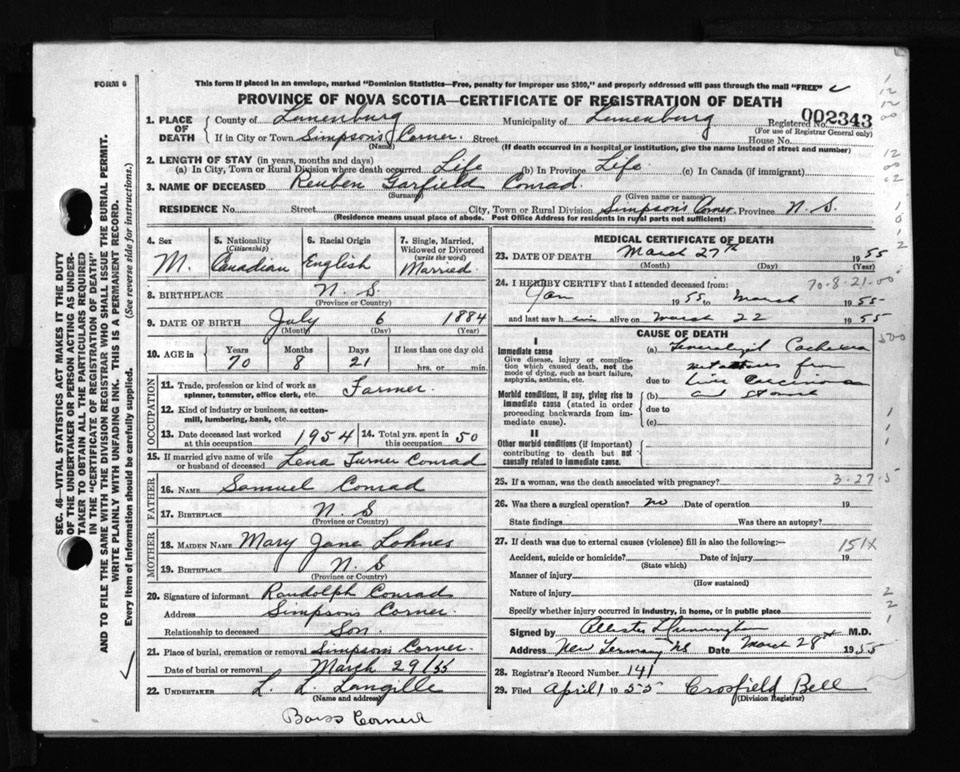 FORM 6
This form if placed in an envelope, marked "Dominion Statistics—Free, penalty for improper use $300," and properly addressed will pass through the mail "FREE"
PROVINCE OF NOVA SCOTIA—CERTIFICATE OF REGISTRATION OF DEATH
SEC. 46—VITAL STATISTICS ACT MAKES IT THE DUTY
OF THE UNDERTAKER OR PERSON ACTING AS UNDER-
TAKER TO OBTAIN ALL THE PARTICULARS REQUIRED
IN THE "CERTIFICATE OF REGISTRATION OF DEATH"
AND TO FILE THE SAME WITH THE DIVISION REGISTRAR WHO SHALL ISSUE THE BURIAL PERMIT.
WRITE PLAINLY WITH UNFADING INK. THIS IS A PERMANENT RECORD.
Every item of information should be carefully supplied. (See reverse side for instructions.)
1. PLACE OF DEATH
County of Lunenburg Municipality of Lunenburg Registered No. 002343
(For use of Registrar General only)
If in City or Town Simpson's Corner. Street House No.
(Name) (If death occurred in a hospital or institution, give the name instead of street and number)
2. LENGTH OF STAY (in years, months and days)
(a) In City, Town or Rural Division where death occurred Life (b) In Province Life (c) In Canada (if immigrant)
3. NAME OF DECEASED Reuben Garfield Conrad.
(Surname) (Given name or names)
RESIDENCE No. Street City, Town or Rural Division Simpsons Corner Province N. S.
(Residence means usual place of abode. Post Office Address for residents in rural parts not sufficient)
4. Sex M.
5. Nationality (Citizenship) Canadian
6. Racial Origin English
7. Single, Married, Widowed or Divorced (write the word) Married.
8. BIRTHPLACE N. S.
(Province or Country)
9. DATE OF BIRTH July 6 1884
(Month) (Day) (Year)
10. AGE in Years 70 Months 8 Days 21 If less than one day old
hrs. or min.
OCCUPATION
11. Trade, profession or kind of work as spinner, teamster, office clerk, etc. Farmer.
12. Kind of industry or business, as cotton-mill, lumbering, bank, etc.
13. Date deceased last worked at this occupation 1954 14. Total yrs. spent in this occupation 50
15. If married give name of wife or husband of deceased Lena Turner Conrad
FATHER
16. NAME Samuel Conrad
17. BIRTHPLACE N. S
(Province or Country)
MOTHER
18. MAIDEN NAME Mary Jane Lohnes
19. BIRTHPLACE N. S
(Province or Country)
20. Signature of informant Randolph Conrad
Address Simpsons Corner.
Relationship to deceased Son.
21. Place of burial, cremation or removal Simpsons Corner.
Date of burial or removal March 29/55
22. UNDERTAKER L. L. Langille
(Name and Address)
MEDICAL CERTIFICATE OF DEATH
23. DATE OF DEATH March 27th 1955
(Month) (Day) (Year)
24. I HEREBY CERTIFY that I attended deceased from: 70-8-21-00
Jan 1955 to March 1955
and last saw him alive on March 22 1955
CAUSE OF DEATH
I
Immediate cause
Give disease, injury or complication which caused death, not the mode of dying, such as heart failure, asphyxia, asthenia, etc.
(a) Generalized Cachexia
due to
Morbid conditions, if any, giving rise to immediate cause (stated in order proceeding backwards from immediate cause).
(b)
due to
(c)
II
Other morbid conditions (if important) contributing to death but not causally related to immediate cause.
25. If a woman, was the death associated with pregnancy? 3-27-5
26. Was there a surgical operation? no Date of operation 19
State findings Was there an autopsy?
27. If death was due to external causes (violence) fill in also the following:— 151X
Accident, suicide or homicide? Date of injury 19
(State which)
Manner of injury
(How sustained)
Nature of injury
Specify whether injury occurred in industry, in home, or in public place
Signed by M.D.
Address New Germany NS Date March 28th 1955
28. Registrar's Record Number 141
29. Filed April 1 1955 Crosfield Bell
(Division Registrar)